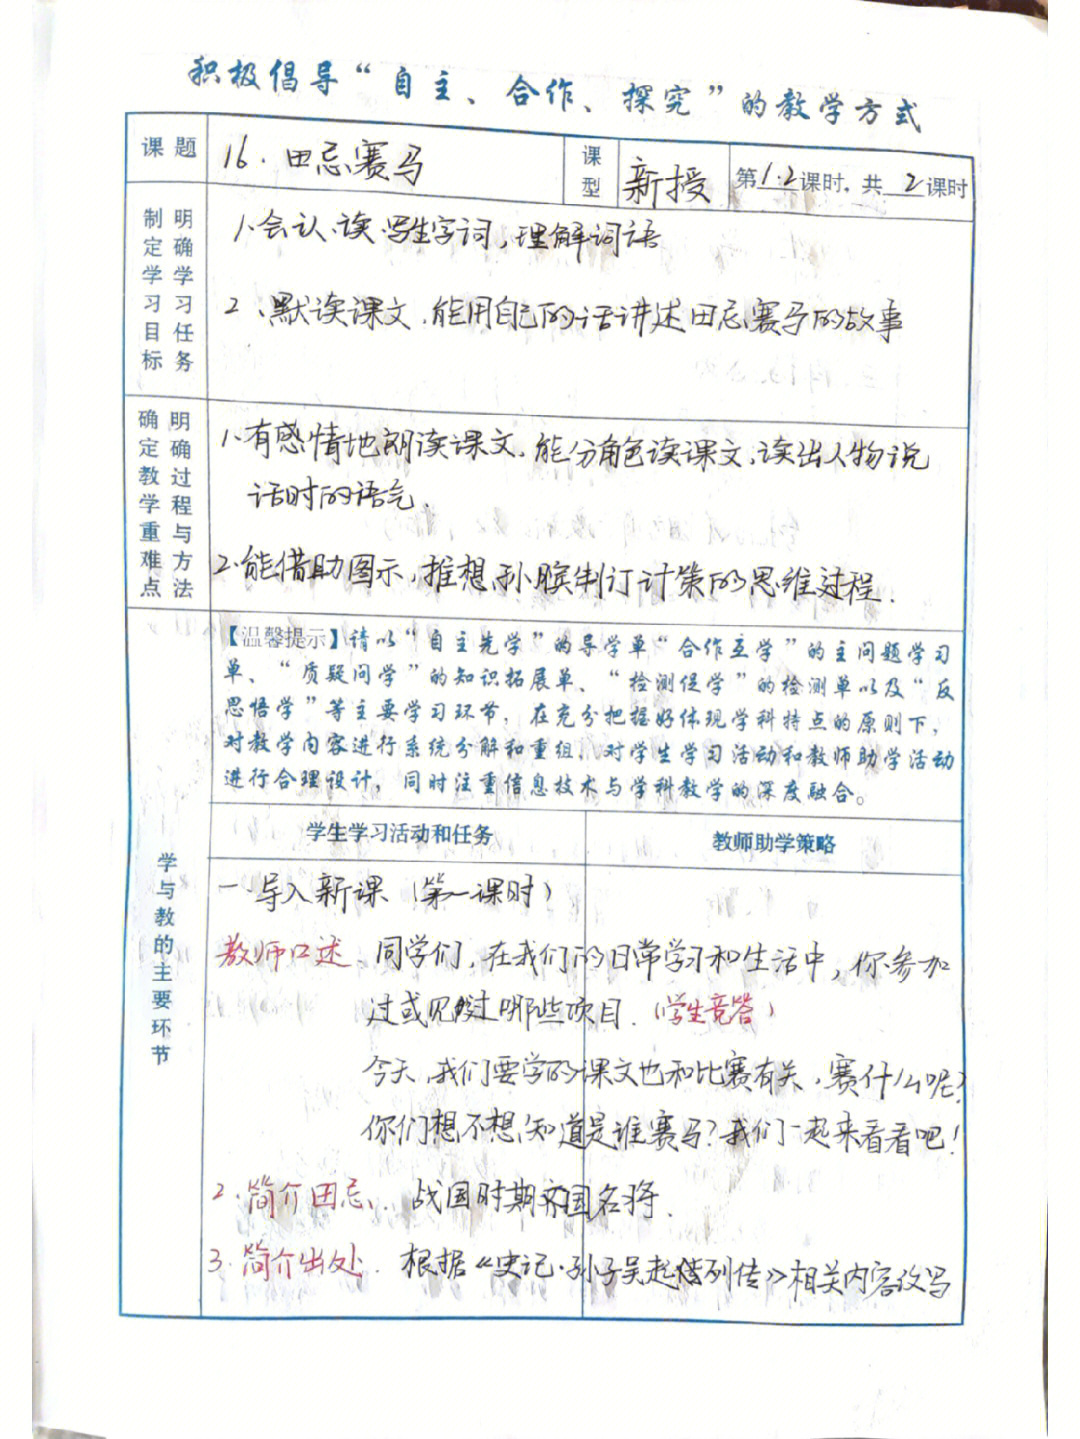 积极倡导“自主、合作、探究”的教学方式
课题
16.田忌赛马
课型
新授
第1.2课时,共2课时
明确学习任务
制定学习目标
1.会认、读、写生字词,理解词语
2、默读课文,能用自己的话讲述田忌赛马的故事
明确过程与方法
确定教学重难点
1.有感情地朗读课文,能分角色读课文,读出人物说
话时的语气.
2.能借助图示,推想孙膑制订计策的思维过程.
学与教的主要环节
【温馨提示】请以“自主先学”的导学单“合作互学”的主问题学习
单、“质疑问学”的知识拓展单、“检测促学”的检测单以及“反
思悟学”等主要学习环节,在充分把握好体现学科特点的原则下,
对教学内容进行系统分解和重组,对学生学习活动和教师助学活动
进行合理设计,同时注重信息技术与学科教学的深度融合。
学生学习活动和任务
教师助学策略
一.导入新课(第一课时)
教师口述.同学们,在我们的日常学习和生活中,你参加
过或见过哪些项目.(学生竞答)
今天,我们要学的课文也和比赛有关,赛什么呢?
你们想不想知道是谁赛马?我们一起来看看吧!
2.简介田忌.战国时期齐国名将.
3.简介出处.根据《史记·孙子吴起列传》相关内容改写